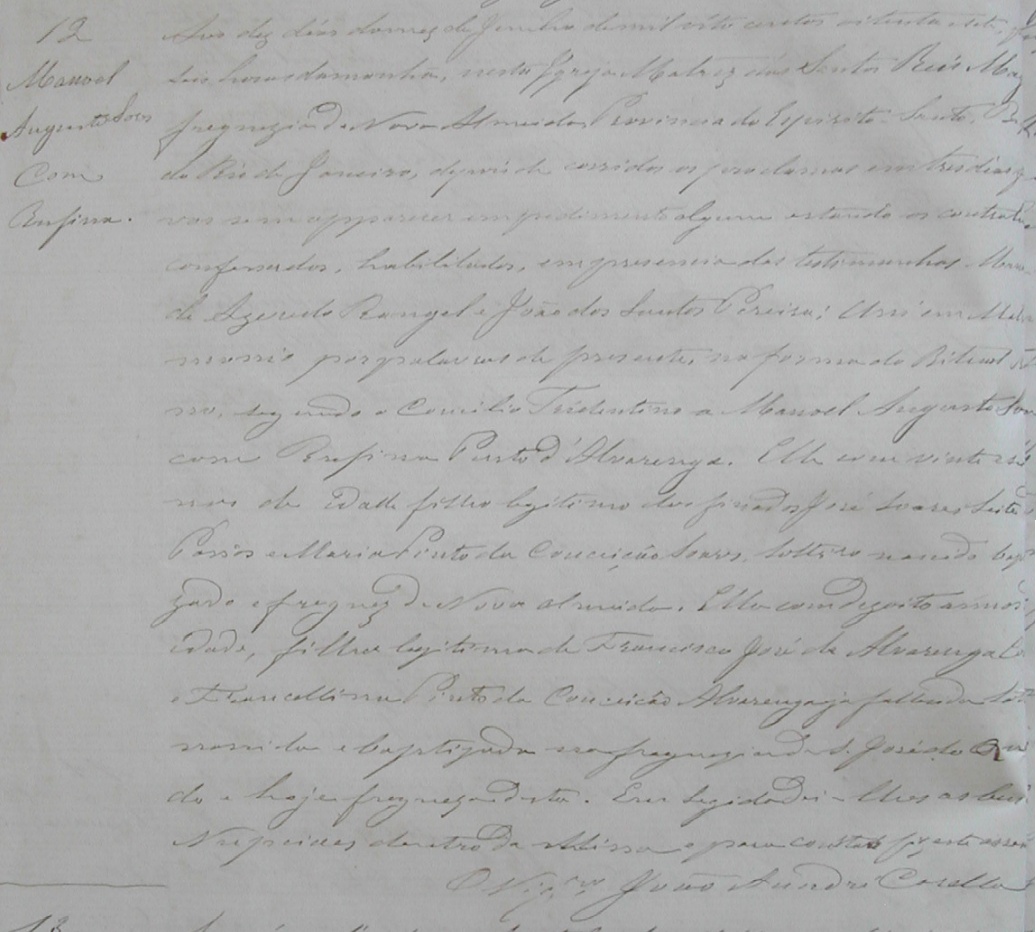 12
Manoel
Augusto Soares
Com
Rufina.
Aos dez dias do mez de Junho de mil oito centos oitenta e sete,
seis horas da manhã, nesta Igreja Matriz dos Santos Reis Ma
freguezia de Nova Almeida, Provincia do Espirito Santo,
do Rio de Janeiro, depois de corridos os proclamas em tres dias
vos sem apparecer impedimento algum estando os contrah
confessados, habilitados, em presencia das testimunhas
de Azeredo Rangel e João dos Santos Pereira; Uni em Ma
monio por palavras de presente, na forma do Ritual
no, segundo o Concilio Tridentino a Manoel Augusto Soa
com Rufina Pinto d'Alvarenga. Elle com vinte
nos de idade filho legitimo dos finados José Soares Leite
Passos e Maria Pinto da Conceição Soares, solteiro nascido bap
zado e freguez de Nova Almeida. Ella com dezoito annos
idade, filha legitima de Francisco José de Alvarenga
e Francellina Pinto da Conceição Alvarenga ja fallecida
nascida e baptizada na freguezia de S. José do
do e hoje fregueza desta. Em seguida dei-lhes as ben
Nupciaes dentro da Missa e para constar fiz este
O Vig.ro João André Casella
13